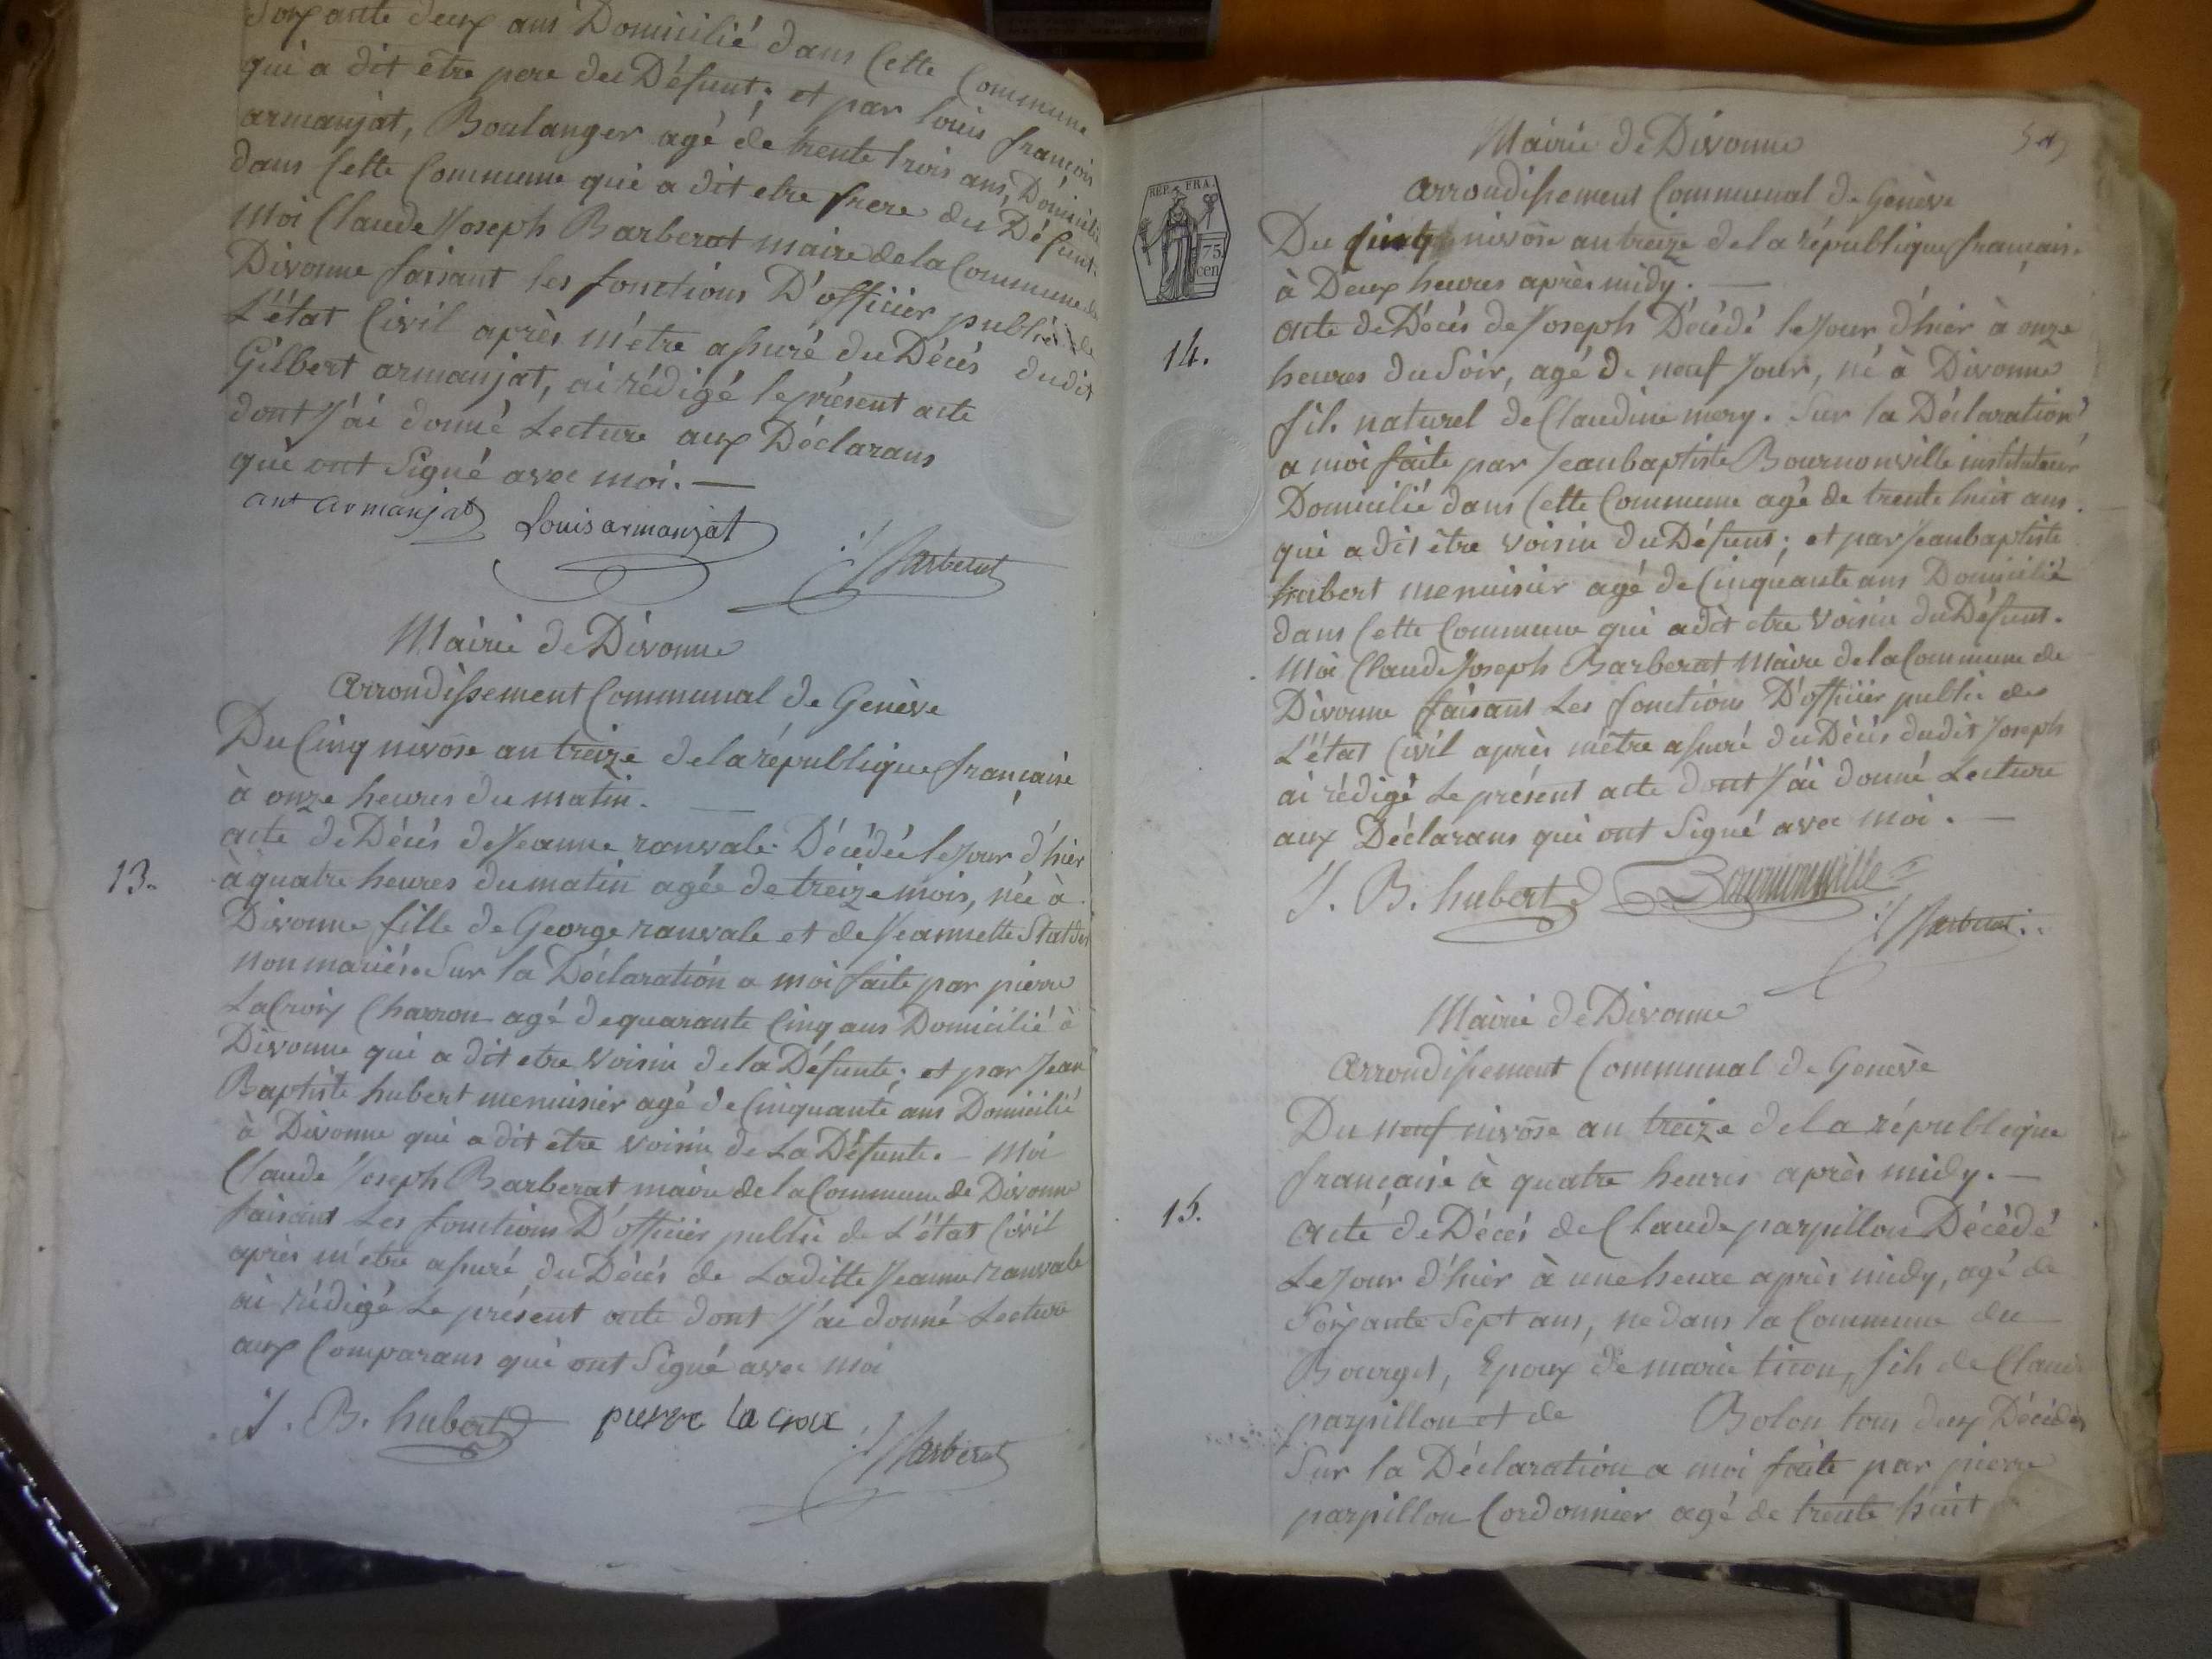 Soixante deux ans Domicilié dans Cette Commune
qui a dit être pere du Défunt; et par louis françois
armanjat, Boulanger agé de trente trois ans, Domicilié
dans Cette Commune qui a dit etre frere du Défunt.
Moi Claude Joseph Barberat maire de la Commune de
Divonne faisant les fonctions D'officier public de
L'état Civil après m'être assuré du Décès dudit
Gilbert armanjat, ai rédigé le présent acte
dont J'ai donné Lecture aux Déclarans
qui ont Signé avec moi. —
ant armanjat Louis armanjat
Barberat
Mairie de Divonne
arrondissement Communal de Genève
Du Cinq nivôse an treize de la république française
à onze heures du matin. —
13.
acte de Décès de Jeanne ranvale Décédée le Jour d'hier
à quatre heures du matin agée de treize mois, née à
Divonne fille de George ranvale et de Jeannette
non mariés. Sur la Déclaration a moi faite par pierre
LaCroix Charron agé de quarante Cinq ans Domicilié à
Divonne qui a dit etre Voisin de la Défunte; et par Jean
Baptiste hubert menuisier agé de Cinquante ans Domicilié
à Divonne qui a dit être voisin de La Défunte. — Moi
Claude Joseph Barberat maire de la Commune de Divonne
faisant Les fonctions D'officier public de L'état Civil
après m'etre assuré du Décès de Laditte Jeanne ranvale
ai rédigé Le présent acte dont J'ai donné Lecture
aux Comparans qui ont Signé avec moi
J. B. hubert pierre la croix
Barberat
Mairie de Divonne
arrondissement Communal de Genève
REP. FRA.
75
cen
Du Cinq nivôse an treize de la république français.
à Deux heures après midy. —
14.
acte de Décés de Joseph Décédé le Jour d'hier à onze
heures du Soir, agé de neuf Jour, né à Divonne
fils naturel de Claudine mery. Sur la Déclaration
a moi faite par Jean baptiste Bournonville instituteur
Domicilié dans Cette Commune agé de trente huit ans.
qui a dit être voisin du Défunt; et par Jean baptiste
hubert menuisier agé de Cinquante ans Domicilié
dans Cette Commune qui a dit etre Voisin du Défunt.
Moi Claude Joseph Barberat Maire de la Commune de
Divonne faisant Les fonctions D'officier public de
L'état Civil après m'être assuré du Décès dudit Joseph
ai rédigé Le présent acte dont J'ai donné Lecture
aux Déclarans qui ont Signé avec moi. —
J. B. hubert Bournonville
Barberat
Mairie de Divonne
arrondissement Communal de Genève
Du neuf nivôse an treize de la république
française à quatre heures après midy. —
15.
acte de Décés de Claude parpillon Décédé
Le Jour d'hier à une heure après midy, agé de
Soixante Sept ans, né dans la Commune du
Bourget, Epoux de marie ticon, fils de Claude
parpillon et de Bolon tous deux Décédés
Sur la Déclaration a moi faite par pierre
parpillon Cordonnier agé de trente huit